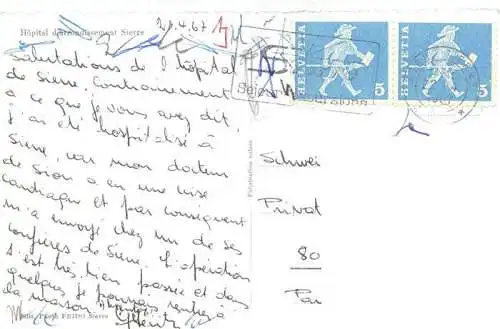 Hôpital d'arrondissement Sierre
29.4.67
Salutations de l'hôpital
de Sierre, contrairement
à ce que je vous avez dit
j'ai été hospitalisé à
Sierre, car mon docteur
de Sion a eu une crise
cardiaque et par conséquent
m'a envoyé chez un de ses
confrères de Sierre. L'opération
s'est très bien passée et dans
quelques je pourrais rentrer à
la maison
HELVETIA
5
HELVETIA
5
Privat
80